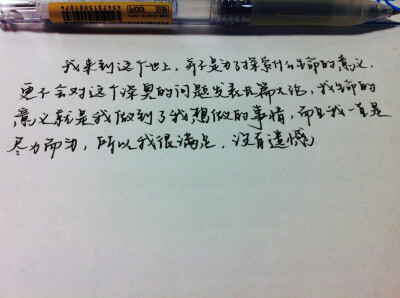 我来到这个世上，并不是为了探索什么生命的意义，
更不会对这个深奥的问题发表长篇大论，我生命的
意义就是我做到了我想做的事情，而且我一直是
尽力而为，所以我很满足，没有遗憾